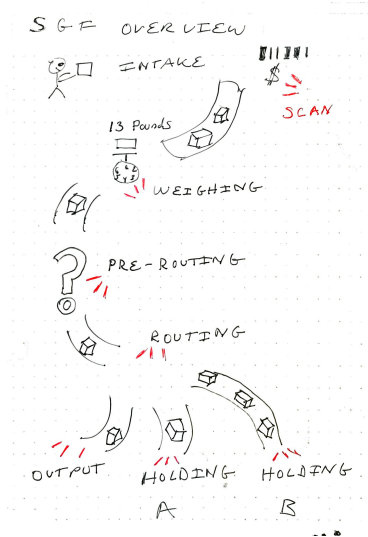 SGF OVERVIEW
INTAKE
$
SCAN
13 Pounds
WEIGHING
?
PRE-ROUTING
ROUTING
OUTPUT
HOLDING
A
HOLDING
B